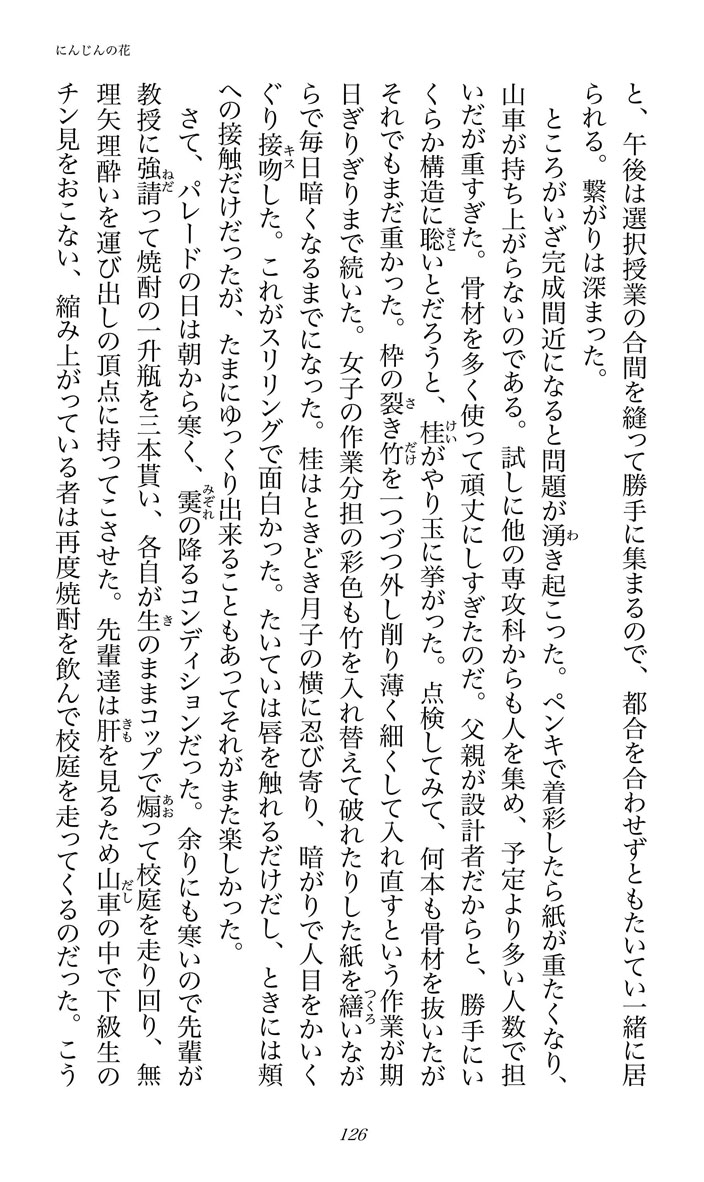 にんじんの花
と、午後は選択授業の合間を縫って勝手に集まるので、都合を合わせずともたいてい一緒に居
られる。繋がりは深まった。
ところがいざ完成間近になると問題が湧き起こった。ペンキで着彩したら紙が重たくなり、
山車が持ち上がらないのである。試しに他の専攻科からも人を集め、予定より多い人数で担
いだが重すぎた。骨材を多く使って頑丈にしすぎたのだ。父親が設計者だからと、勝手にい
くらか構造に聡いとだろうと、桂がやり玉に挙がった。点検してみて、何本も骨材を抜いたが
それでもまだ重かった。枠の裂き竹を一つづつ外し削り薄く細くして入れ直すという作業が期
日ぎりぎりまで続いた。女子の作業分担の彩色も竹を入れ替えて破れたりした紙を繕いなが
らで毎日暗くなるまでになった。桂はときどき月子の横に忍び寄り、暗がりで人目をかいく
ぐり接吻した。これがスリリングで面白かった。たいていは唇を触れるだけだし、ときには頬
への接触だけだったが、たまにゆっくり出来ることもあってそれがまた楽しかった。
さて、パレードの日は朝から寒く、霙の降るコンディションだった。余りにも寒いので先輩が
教授に強請って焼酎の一升瓶を三本貰い、各自が生のままコップで煽って校庭を走り回り、無
理矢理酔いを運び出しの頂点に持ってこさせた。先輩達は肝を見るため山車の中で下級生の
チン見をおこない、縮み上がっている者は再度焼酎を飲んで校庭を走ってくるのだった。こう
126